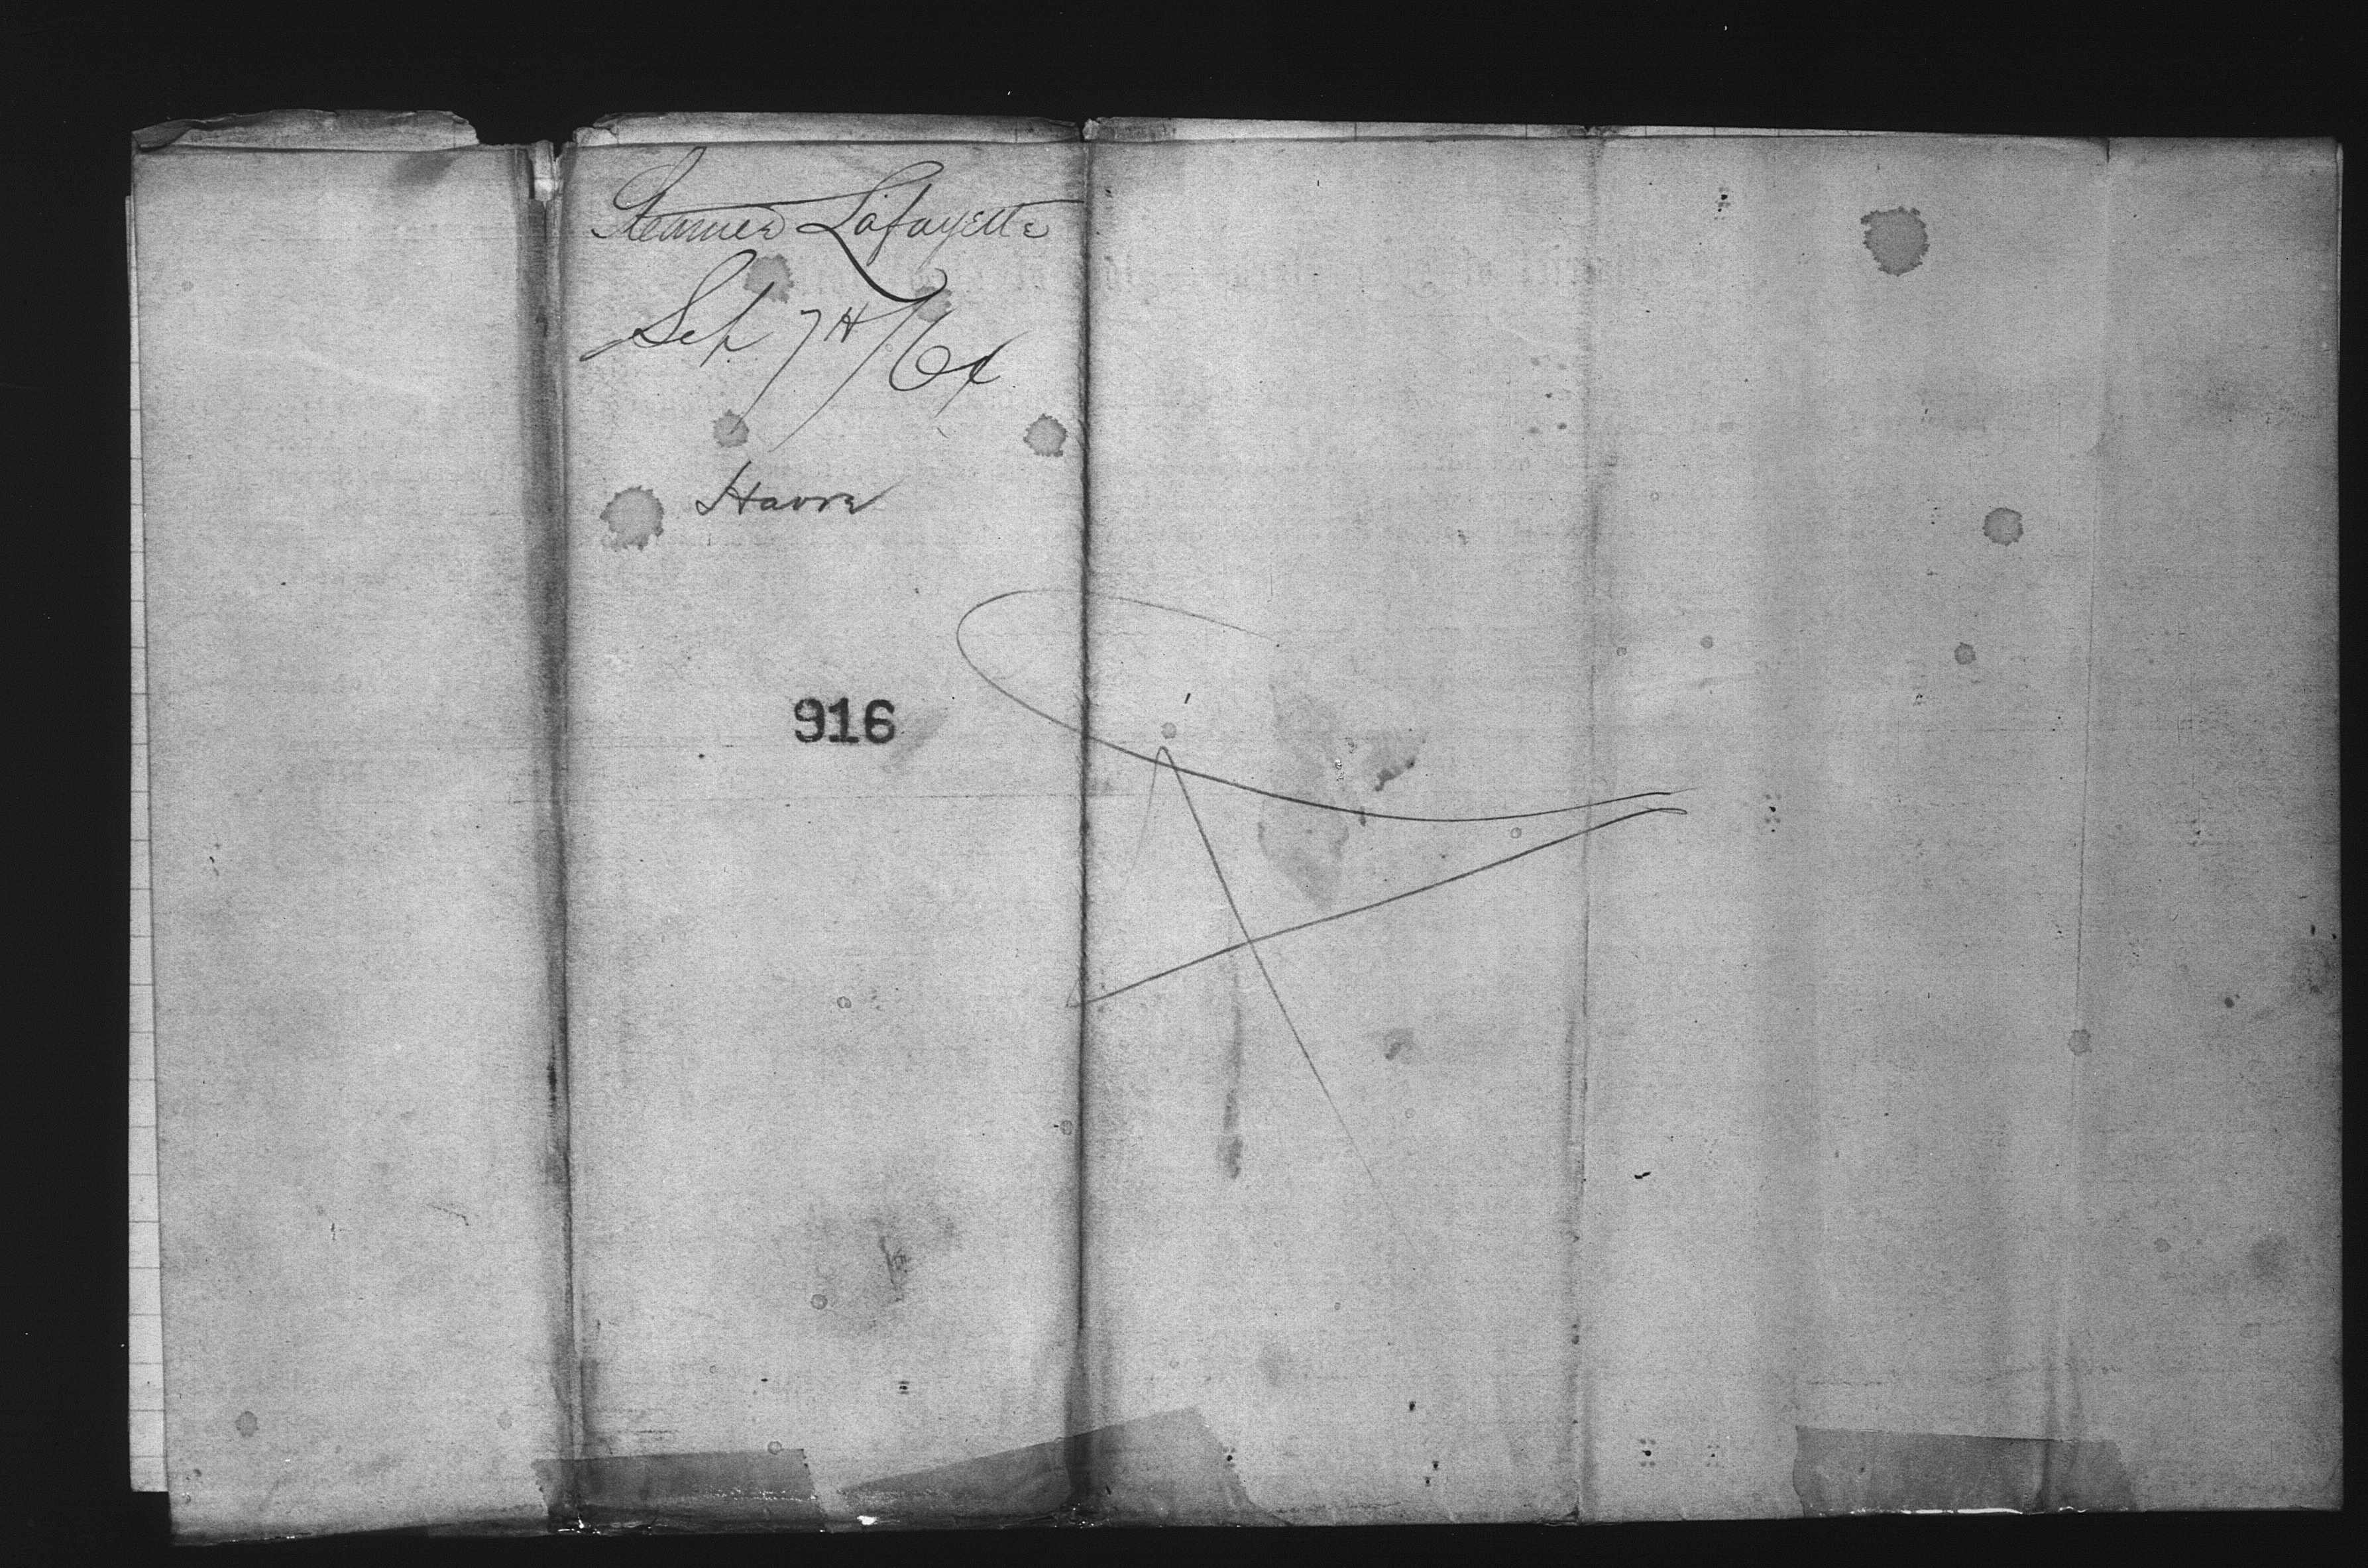 Steamer Lafayette
Sep 7th/64
Havre
916